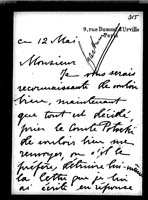 315
9, rue Dumont d'Urville
Paris
ce 12 Mai
Monsieur
Je vous serais
reconnaissante de vouloir
bien, maintenant
que tout est décidé,
prier le Comte Potocki
de vouloir bien me
renvoyer, ou s'il le
préfère, détruire lui-même
la lettre que je lui
ai écrite en réponse